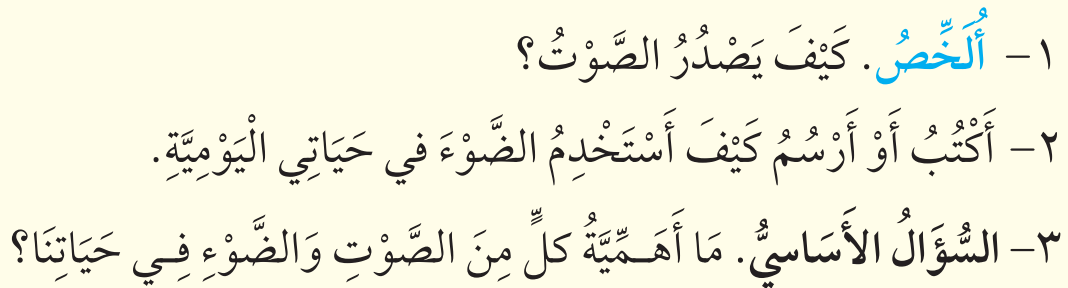 ١- أُلَخِّصُ. كَيْفَ يَصْدُرُ الصَّوْتُ؟
٢- أَكْتُبُ أَوْ أَرْسُمُ كَيْفَ أَسْتَخْدِمُ الضَّوْءَ في حَيَاتِي الْيَوْمِيَّةِ.
٣- السُّؤَالُ الأَسَاسيُّ. مَا أَهَـمِّيَّةُ كلٍّ مِنَ الصَّوْتِ وَالضَّوْءِ فِـي حَيَاتِنَا؟